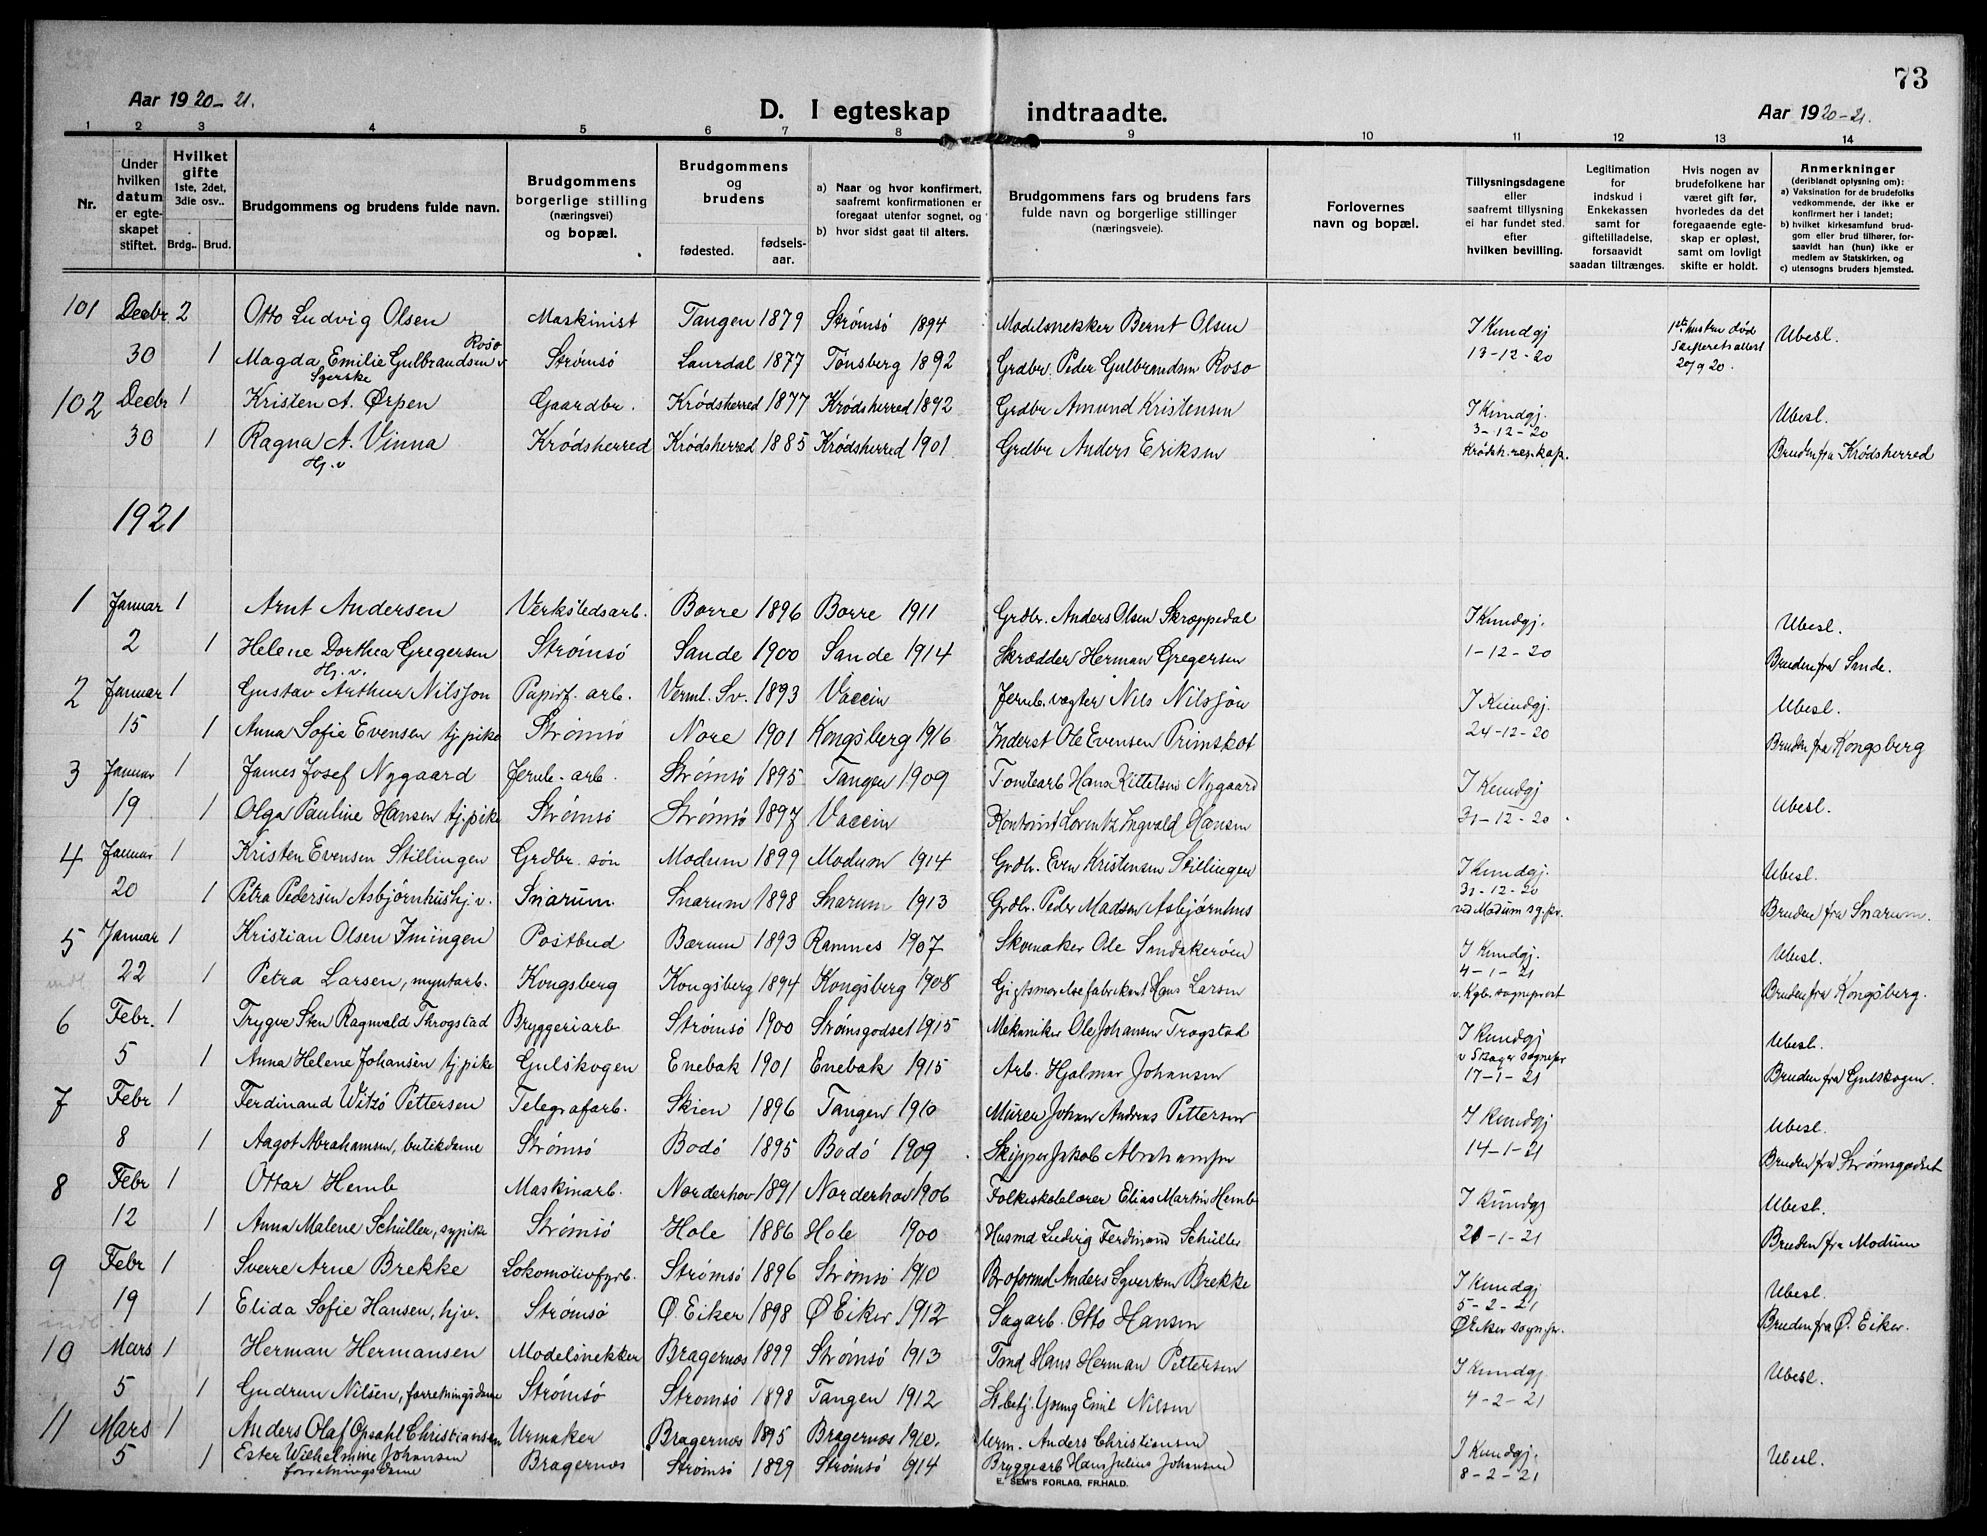 73
Aar 1920-21.
D. I egteskap indtraadte.
Aar 1920-21.
1 2 3 4 5 6 7 8 9 10 11 12 13 14
Nr.
Under hvilken datum er egteskapet stiftet.
Hvilket gifte 1ste, 2det, 3die osv..
Brdg.. Brud.
Brudgommens og brudens fulde navn.
Brudgommens borgerlige stilling (næringsvei) og bopæl.
Brudgommens og brudens
fødested. fødsels-aar.
a) Naar og hvor konfirmert, saafremt konfirmationen er foregaat utenfor sognet, og
b) hvor sidst gaat til alters.
Brudgommens fars og brudens fars fulde navn og borgerlige stillinger (næringsveie).
Forlovernes navn og bopæl.
Tillysningsdagene eller saafremt tillysning ei har fundet sted. efter hvilken bevilling.
Legitimation for indskud i Enkekassen samt for giftetilladelse, forsaavidt saadan tiltrænges.
Hvis nogen av brudefolkene har været gift før, hvorledes da det foregaaende egteskap er opløst, samt om lovligt skifte er holdt.
Anmerkninger (deriblandt oplysning om):
a) Vaksination for de brudefolks vedkommende, der ikke er konfirmert her i landet;
b) hvilket kirkesamfund brudgom eller brud tilhører, forsaavidt han (hun) ikke er medlem av Statskirken, og
c) utensogns bruders hjemsted.
101 Decbr 2 Otto Ludvig Olsen Maskinist Tangen 1879 Strømsø 1894 Modelsnekker Bernt Olsen I Kundgj 1ste hustru død Ubesl.
30 1 Magda Emilie Gulbrandsen Roso Strømsø Laurdal 1877 Tønsberg 1892 Grdbr. Peder Gulbrandsen Roso 13-12-20 20/9 20.
102 Decbr 1 Kristen A. Ørpen Gaardbr. Krødsherred 1877 Krødsherred 1892 Grdbr Amund Kristensen I Kundgj. 3-12-20 Ubesl.
30 1 Ragna A. Vinna Hj. v Krødsherred Krødsherred 1885 Krødsherred 1901 Grdbr Anders Eriksen Krødsh. res. kap. Bruden fra Krødsherred
1921
1 Januar 1 Arnt Andersen Verkstedsarb. Borre 1896 Borre 1911 Grdbr. Anders Olsen Skræppedal I Kundgj. Ubesl.
2 1 Helene Dorthea Gregersen Hj. v. Strømsø Sande 1900 Sande 1914 Skrædder Herman Gregersen 1-12-20 Bruden fra Sande.
2 Januar 1 Gustav Arthur Nilsson Papirf. arb. Verml. Sv. 1893 Vaccin Jernb. vogter Nils Nilsson I Kundgj. Ubesl.
15 1 Anna Sofie Evensen tj. pike Strømsø Nore 1901 Kongsberg 1916 Inderst Ole Evensen Primskot 24-12-20 Bruden fra Kongsberg
3 Januar 1 James Josef Nygaard Jernb. arb. Strømsø 1895 Tangen 1909 Tomtearb Hans Kittelsen Nygaard I Kundgj
19 1 Olga Pauline Hansen tj. pike Strømsø Strømsø 1897 Vaccin Kontorist Lorentz Ingvald Hansen 31-12-20 Ubesl.
4 Januar 1 Kristen Evensen Stillingen Grdbr. søn Modum 1899 Modum 1914 Grdbr. Even Kristensen Stillingen I Kundgj. 31-12-20 Ubesl.
20 1 Petra Pedersen Asbjørnhus hj. v. Snarum Snarum 1898 Snarum 1913 Grdbr. Peder Madsen Asbjørnhus ved Modum sg. pr. Bruden fra Snarum.
5 Januar 1 Kristian Olsen Imingen Postbud Bærum 1893 Ramnes 1907 Skomaker Ole Sandakerøen I Kundgj. 4-1-21 Ubesl.
indl. 22 1 Petra Larsen, myntarb. Kongsberg Kongsberg 1894 Kongsberg 1908 Hans Larsen v. Kgb. sogneprest Bruden fra Kongsberg.
6 Febr. 1 Trygve Sten Ragnvald Throgstad Bryggeriarb Strømsø 1900 Strømsgodset 1915 Mekaniker Ole Johansen Trogstad I Kundgj Ubesl.
5 1 Anna Helene Johansen tj. pike Gulskogen Enebak 1901 Enebak 1915 Arb. Hjalmar Johansen v Skoger sognepr 17-1-21 Bruden fra Gulskogen.
7 Febr 1 Ferdinand Witzø Pettersen Telegrafarb. Skien 1896 Tangen 1910 Murer Johan Andreas Pettersen I Kundgj Ubesl.
8 1 Aagot Abrahamsen, butikdame Strømsø Bodø 1895 Bodø 1909 Skipper Jakob Abrahamsen 14-1-21 Bruden fra Strømsgodset
8 Febr 1 Ottar Hemb Maskinarb. Norderhov 1891 Norderhov 1906 Folkeskolelærer Elias Martin Hemb I Kundgj Ubesl.
12 1 Anna Malene Schüller, sypike Strømsø Hole 1886 Hole 1900 Husmd Ludvig Ferdinand Schüller 21-1-21 Bruden fra Modum
9 Febr 1 Sverre Arne Brekke Lokomotivfyrb. Strømsø 1896 Strømsø 1910 Broformd Anders Syversen Brekke I Kundgj 5-2-21 Ubesl.
indl. 19 1 Elida Sofie Hansen, hjv. Strømsø Ø. Eiker 1898 Ø Eiker 1912 Sagarb. Otto Hansen Ø Eiker sognepr. Bruden fra Ø. Eiker.
10 Mars 1 Herman Hermansen Modelsnekker Bragernæs 1899 Strømsø 1913 Tmd Hans Herman Pettersen I Kundgj. Ubesl.
5 1 Gudrun Nilsen, forretningsdame Strømsø Strømsø 1898 Tangen 1912 St. betj. Young Emil Nilsen 4-2-21
11 Mars 1 Anders Olaf Opsahl Christiansen Urmaker Bragernæs 1895 Bragernæs 1910. Urm. Anders Christiansen I Kundgj.
5 1 Ester Wilhelmine Johansen forretningsdame Bragernæs Strømsø 1899 Strømsø 1914 Bryggearb Hans Julius Johansen 8-2-21 Ubesl.
E. SEM'S FORLAG, FR.HALD.